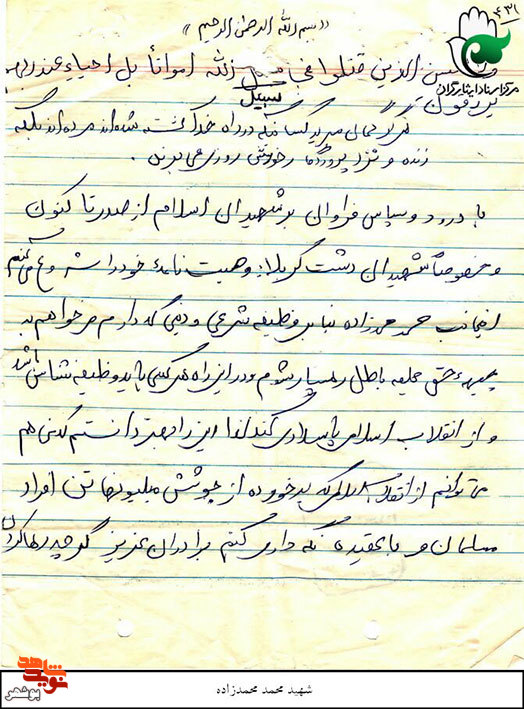 ۴۳۱
مرکز اسناد ایثارگران
« بسم الله الرحمن الرحیم »
الذین قتلوا فی سبیل الله امواتا بل احیاء عند ربهم
یرزقون
گمان مبرید کسانیکه در راه خدا کشته شده‌اند مرده‌اند بلکه
زنده و نزد پروردگار خودشان روزی می‌برند.
با درود و سپاس فراوان بر شهیدان اسلام از صدر تا کنون
و خصوصاً شهیدان دشت کربلا: وصیت نامه خود را شروع می‌کنم
اینجانب محمد محمدزاده بنا بر وظیفه شرعی و دینی که دارم میخواهم به
جبهه حق علیه باطل رهسپار شوم و در این راه هر کسی باید وظیفه شناس باشد
و از انقلاب اسلامی پاسداری کند لذا این را بهتر دانستم که من هم
میتوانم از انقلاب اسلامی که برخورده از جوشش میلیونها تن افراد
مسلمان و با عقیده نگه داری کنم برادران عزیز گرچه رها کردن
شاهد
نوید
بوشهر
شهید محمد محمدزاده